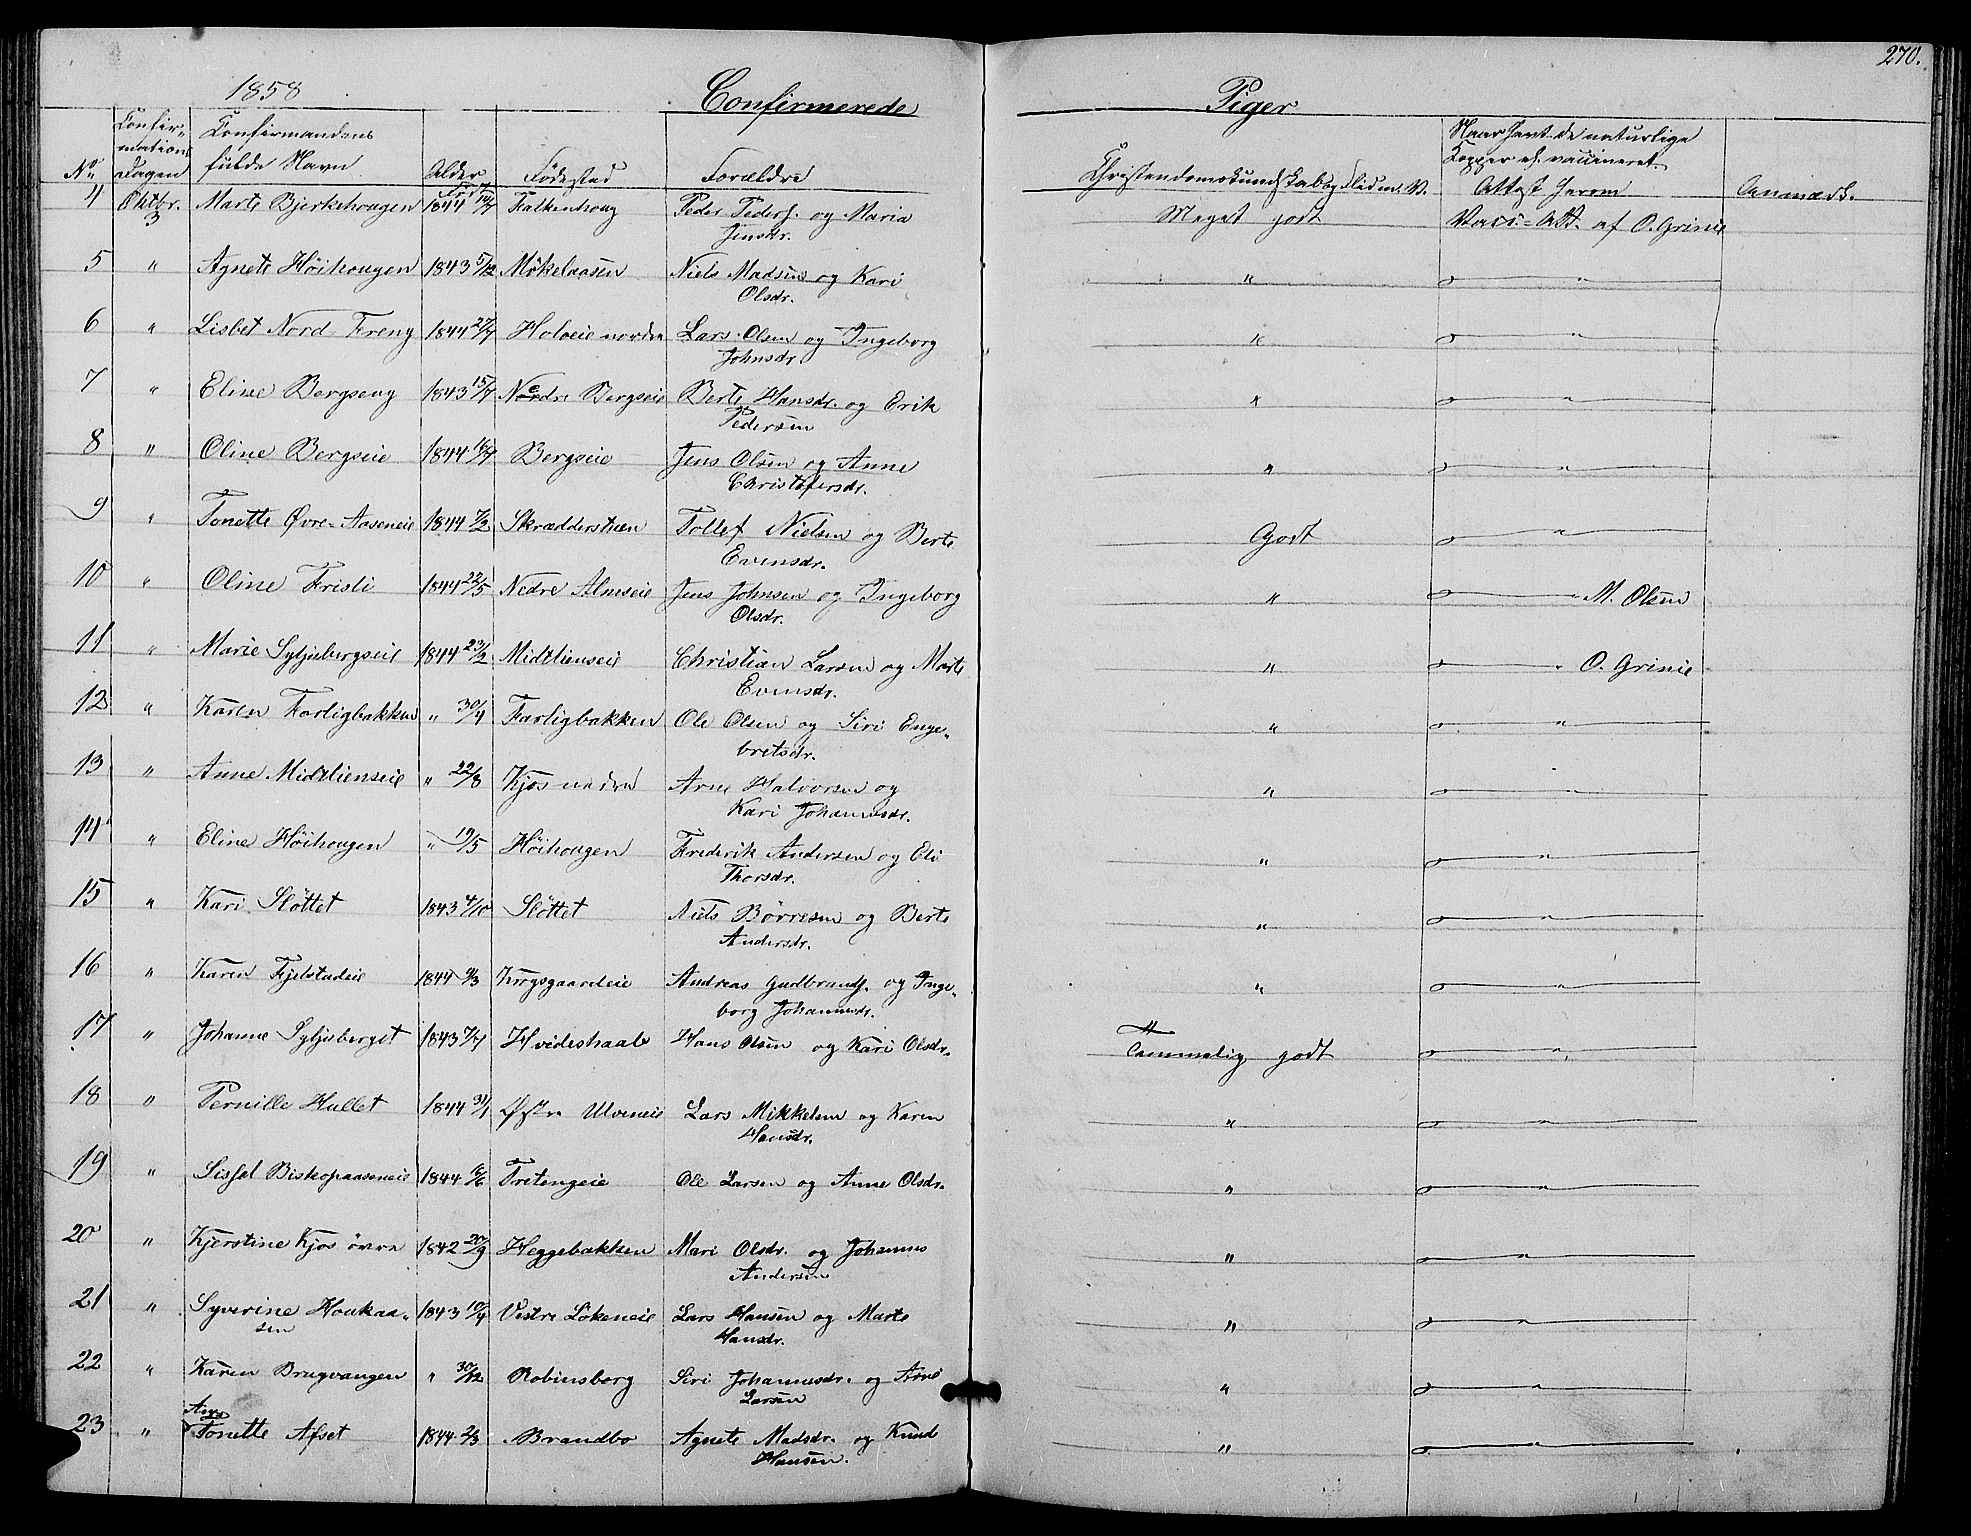 270.
1858 Confirmerede Piger
No. Confirmations Dagen Confirmandens fulde Navn Alder Født Fødested Forældre Christendomskundskab og Flid m. V. Naar havt de naturlige Kopper el. vaccineret Attest herom Anmærk.
4 Oktbr. 3 Marte Bjerkehougen 1844 14/7 Falkenhoug Peder Peders. og Maria Meget godt Vacc.-Att. af O. Grinie
Jensdr.
5 " Agnete Höihougen 1843 5/12 Mökelaasen Niels Madsen og Kari " "
Olsdr.
6 " Lisbet Nord Freng 1844 27/7 Holoeie nordre Lars Olsen og Ingeborg " "
Johnsdr.
7 " Eline Bergseng 1843 15/7 Nedre Bergseie Berte Hansdr. og Erik " "
Pedersen
8 " Oline Bergseie 1844 16/9 Bergseie Jens Olsen og Anne " "
Christofersdr.
9 " Tonette Øvre-Aaseneie 1844 7/2 Skrædderstuen Tollef Nielsen og Berte Godt "
Evensdr.
10 " Oline Fristi 1844 22/5 Nedre Almseie Jens Johnsen og Ingeborg " " M. Olsen
Olsdr.
11 " Marie Syljubergseie 1844 23/2 Midtlienseie Christian Larsen og Marte " " O. Grinie
Evensdr.
12 " Karen Farligbakken " 30/4 Farligbakken Ole Olsen og Siri Enge- " "
bretsdr.
13 " Anne Midtlienseie " 22/8 Kjos nedre Arne Halvorsen og " "
Kari Johannesdr.
14 " Eline Höihougen " 19/5 Höihougen Frederik Andersen og Eli " "
Thorsdr.
15 " Kari Slöttet 1843 4/10 Slöttet Niels Börresen og Berte " "
Andersdr.
16 " Karen Fjelstadeie 1844 9/3 Krogsgaardeie Andreas Gudbrands. og Inge- " "
borg Johannesdr.
17 " Johanne Syljuberget 1843 7/4 Hvideskaal Hans Olsen og Kari Olsdr. Temmelig godt "
18 " Pernille Hullet 1844 31/1 Østre Ulveneie Lars Mikkelsen og Karen " "
Hansdr.
19 " Sissel Biskopaaseneie 1844 8/6 Tretengeie Ole Larsen og Anne Olsdr. " "
20 " Kjerstine Kjos övre 1842 20/9 Heggebakken Mari Olsdr. og Johannes " "
Andersen
21 " Syverine Houkaa- 1843 10/9 Vestre Lökeneie Lars Hansen og Marte " "
sen Hansdr.
22 " Karen Brugvangen " 30/12 Robinsborg Siri Johannesdr. og Arne " "
Larsen
23 " Tonette Afset 1844 2/3 Brandbo Agnete Madsdr. og Knud " "
Hansen.